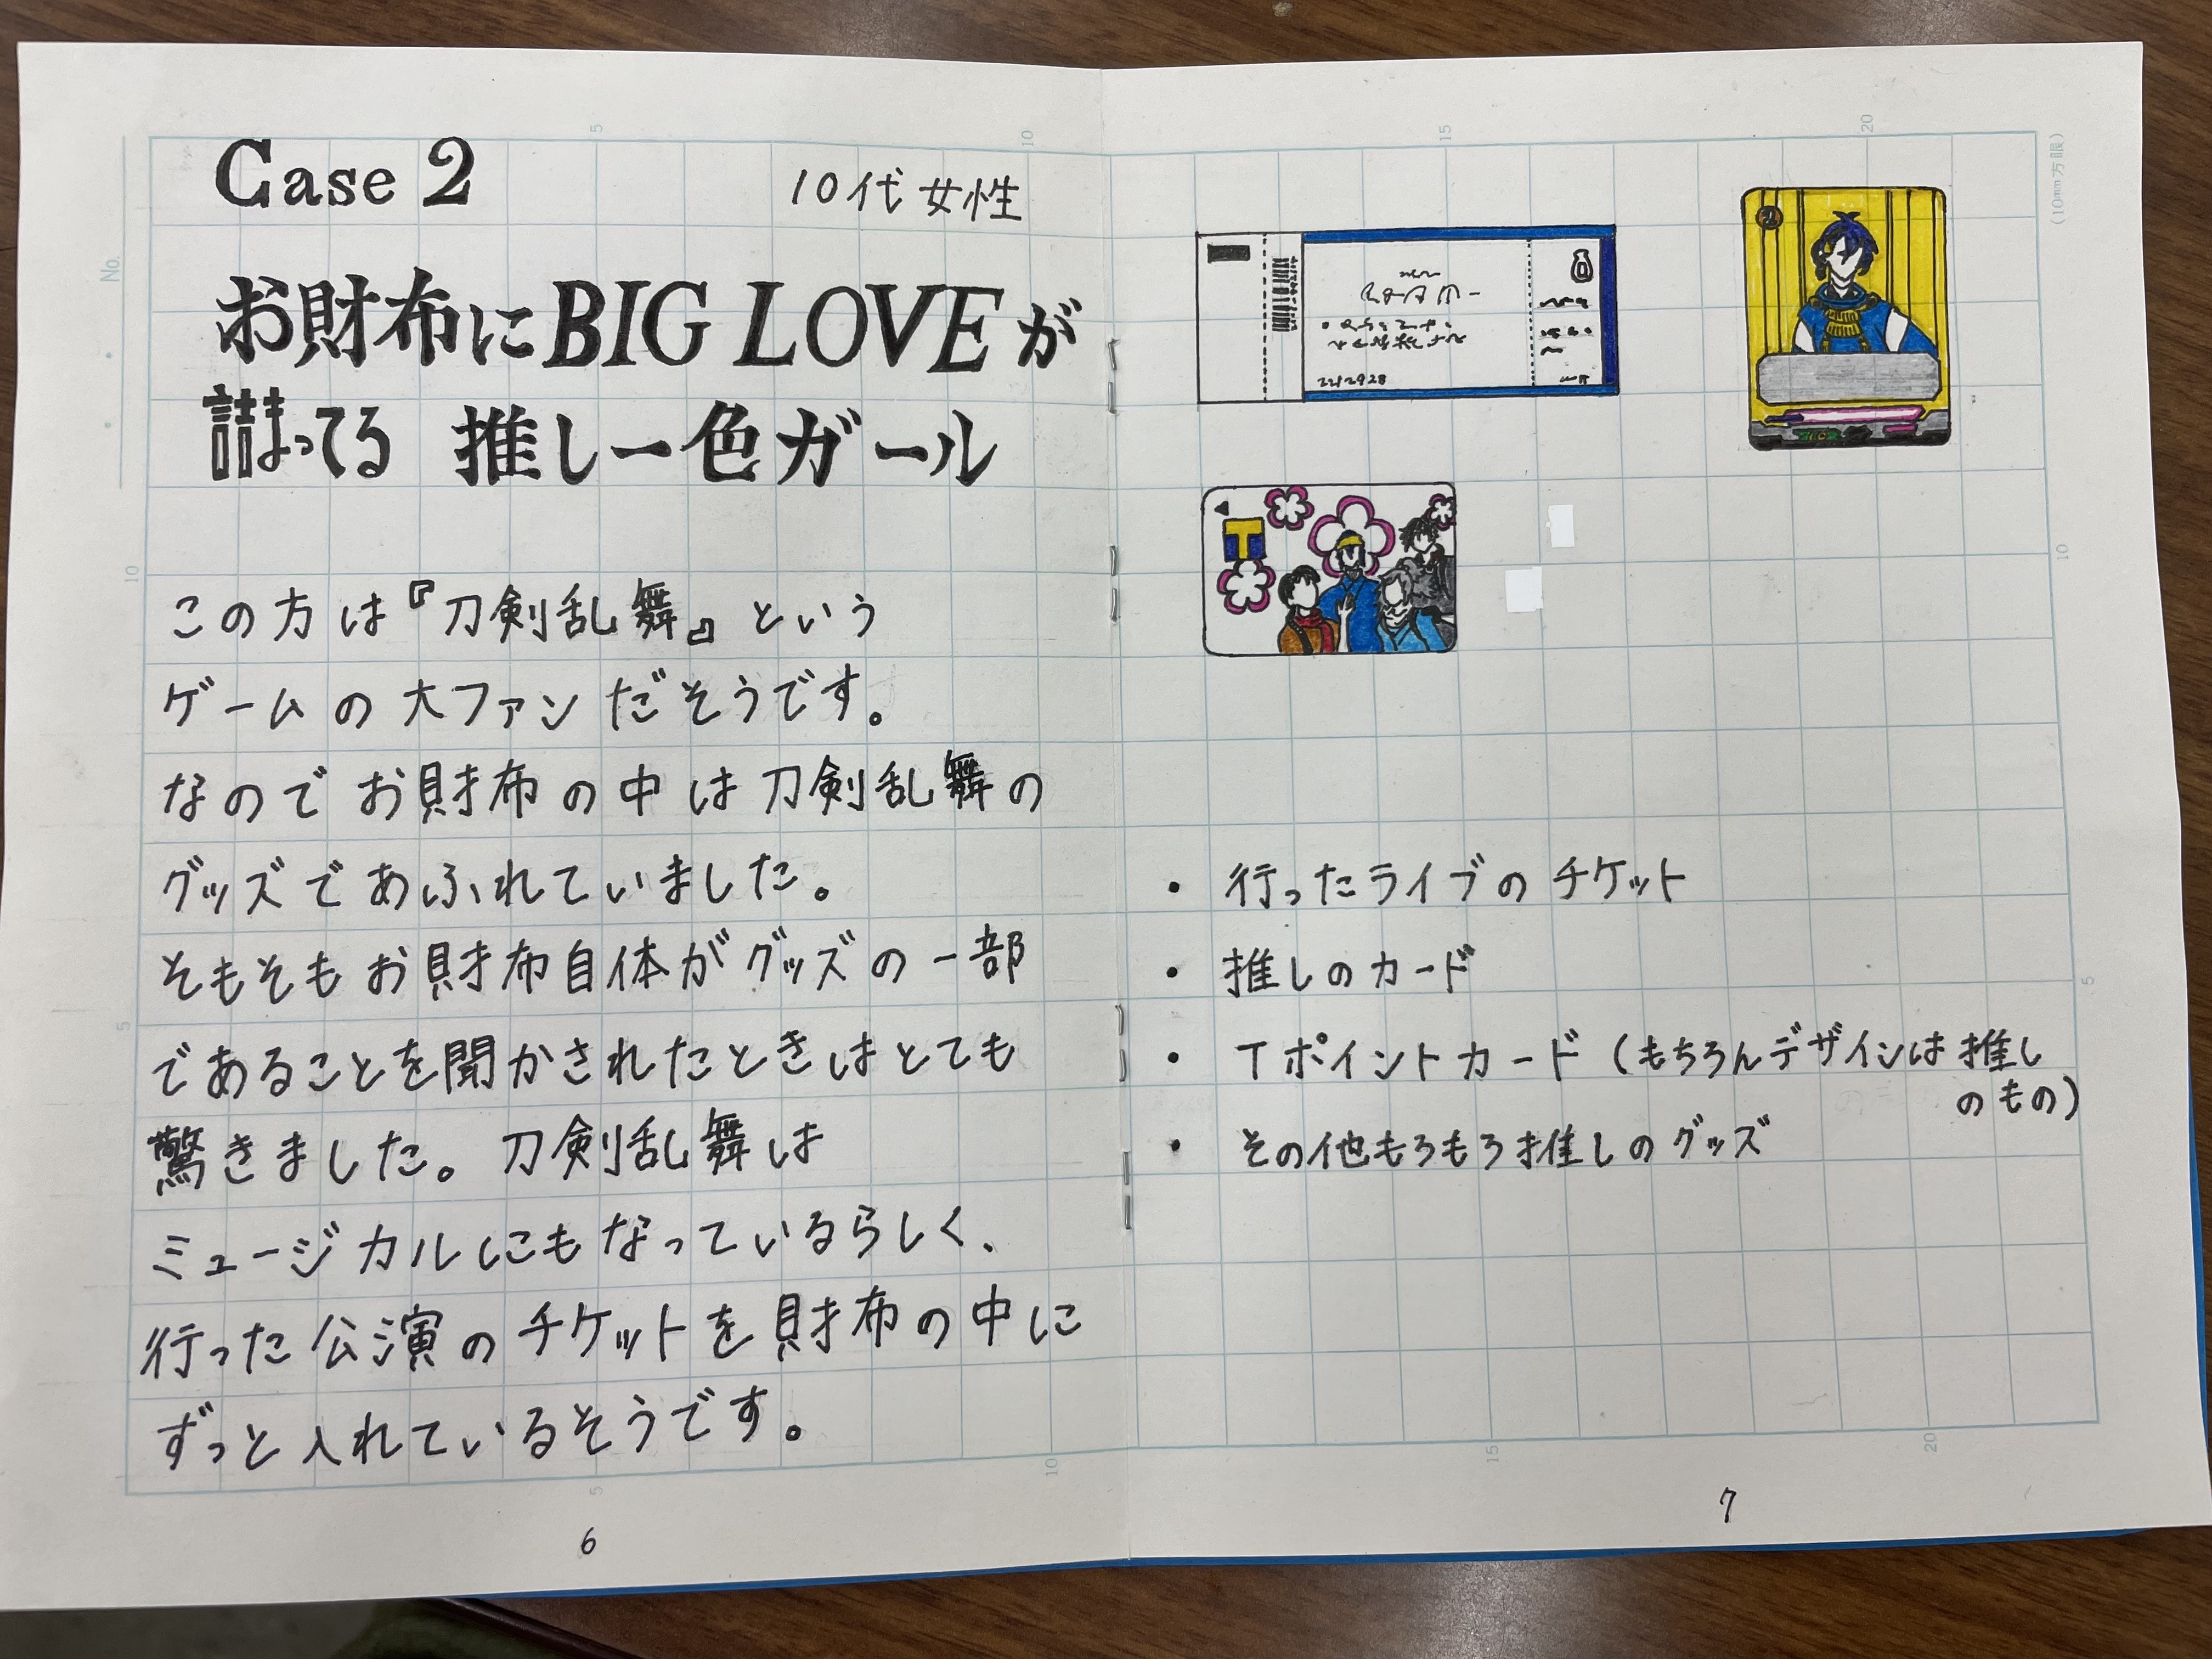 Case 2
10代女性
お財布にBIG LOVEが
詰まってる 推し一色ガール
この方は『刀剣乱舞』という
ゲームの大ファンだそうです。
なのでお財布の中は刀剣乱舞の
グッズであふれていました。
そもそもお財布自体がグッズの一部
であることを聞かされたときはとても
驚きました。刀剣乱舞は
ミュージカルにもなっているらしく、
行った公演のチケットを財布の中に
ずっと入れているそうです。
6
No.
5
10
10
5
5
10
15
20
(10mm方眼)
2212928
T
10
5
・行ったライブのチケット
・推しのカード
・Tポイントカード(もちろんデザインは推し
のもの)
・その他もろもろ推しのグッズ
15
20
7